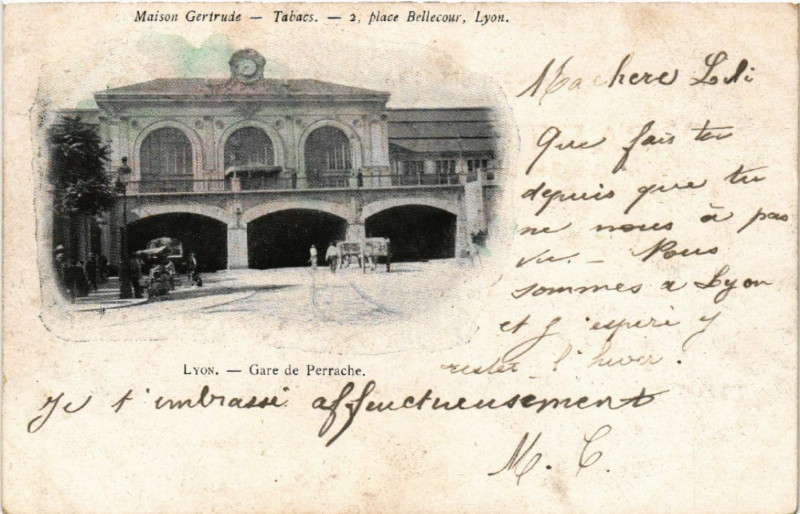 Maison Gertrude — Tabacs. — 2, place Bellecour, Lyon.
Ma chere Loli
Que fais tu
depuis que tu
ne nous à pas
vu. - Nous
sommes a Lyon
et j'esperé y
rester l'hiver.
LYON. — Gare de Perrache.
Je t'imbrassé affectueusement
M. C.